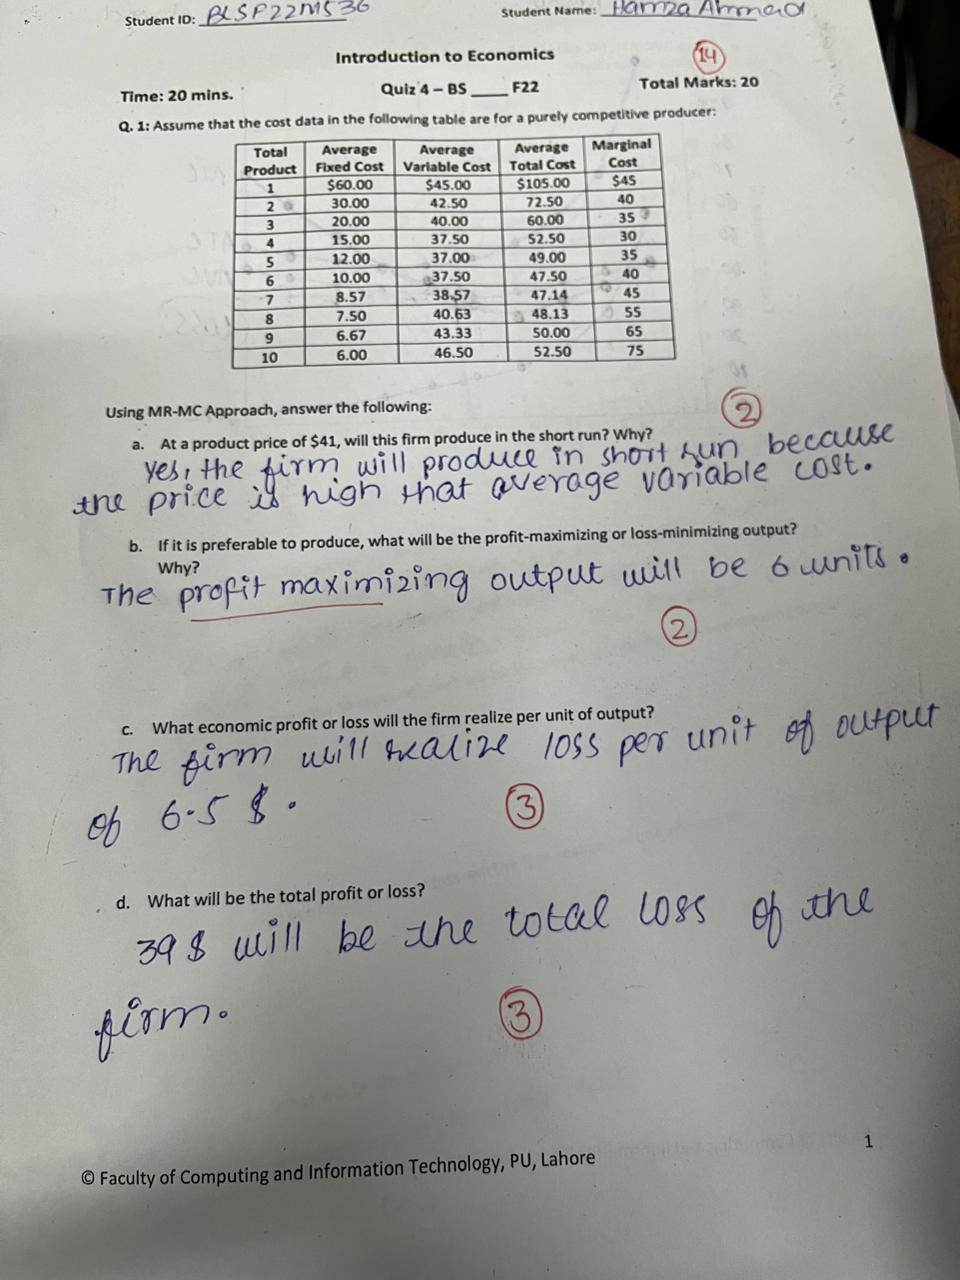 Student ID: BLSP22M536 Student Name: Hamza Ahmad
Introduction to Economics
14
Time: 20 mins. Quiz 4 – BS ____ F22 Total Marks: 20
Q. 1: Assume that the cost data in the following table are for a purely competitive producer:
Total Product Average Fixed Cost Average Variable Cost Average Total Cost Marginal Cost
1 $60.00 $45.00 $105.00 $45
2 30.00 42.50 72.50 40
3 20.00 40.00 60.00 35
4 15.00 37.50 52.50 30
5 12.00 37.00 49.00 35
6 10.00 37.50 47.50 40
7 8.57 38.57 47.14 45
8 7.50 40.63 48.13 55
9 6.67 43.33 50.00 65
10 6.00 46.50 52.50 75
Using MR-MC Approach, answer the following:
2
a. At a product price of $41, will this firm produce in the short run? Why?
yes, the firm will produce in short run because
the price is high that average variable cost.
b. If it is preferable to produce, what will be the profit-maximizing or loss-minimizing output?
Why?
The profit maximizing output will be 6 units.
2
c. What economic profit or loss will the firm realize per unit of output?
The firm will realize loss per unit of output
of 6.5 $.
3
d. What will be the total profit or loss?
39 $ will be the total loss of the
firm.
3
1
© Faculty of Computing and Information Technology, PU, Lahore